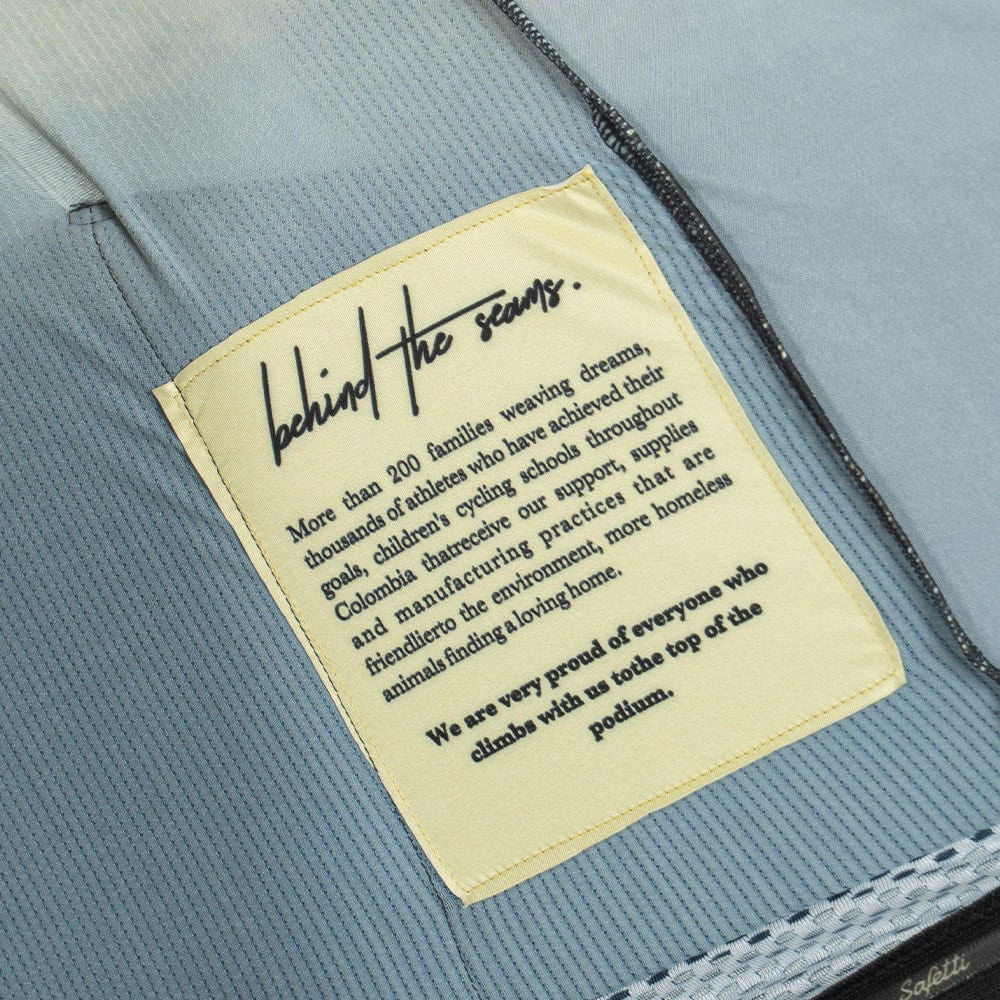 behind the seams.
More than 200 families weaving dreams,
thousands of athletes who have achieved their
goals, children's cycling schools throughout
Colombia thatreceive our support, supplies
and manufacturing practices that are
friendlierto the environment, more homeless
animals finding a loving home.
We are very proud of everyone who
climbs with us tothe top of the
podium.
Safetti